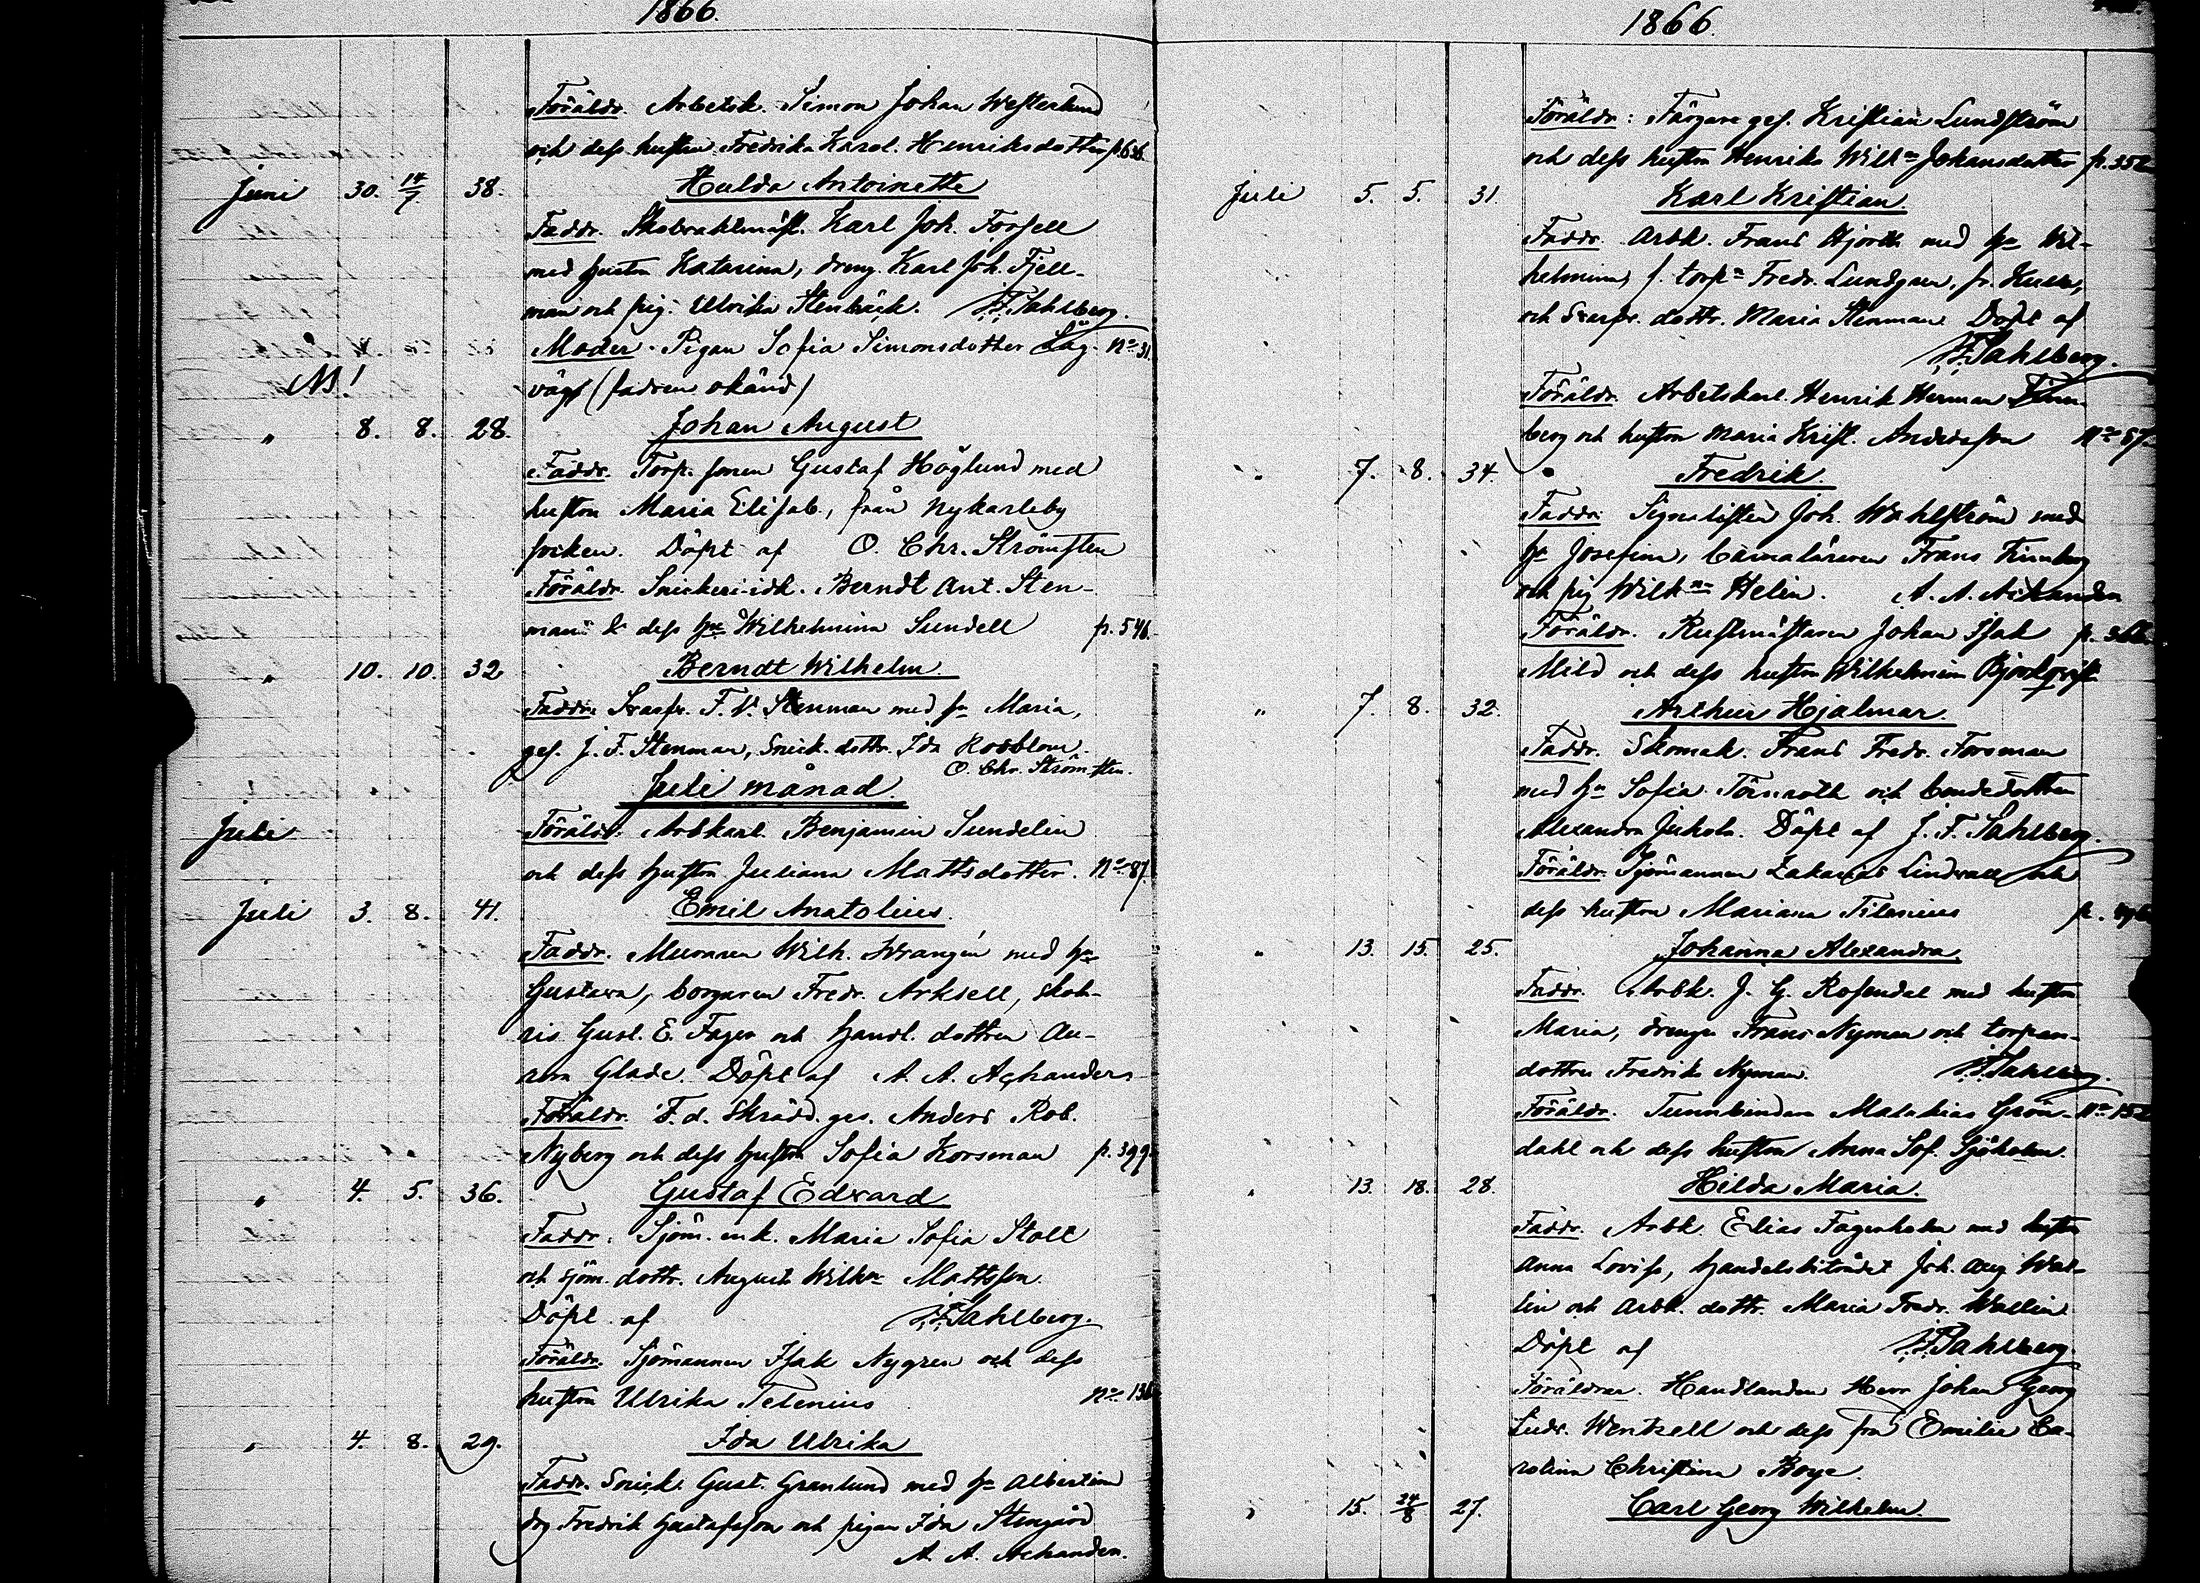 1866.
Föräldr. Arbetsk. Simon Johan Westerlund
och dess hustru Fredrika Karol. Henriksdotter p.
Juni 30. 14/7 38. Hulda Antoinette
Faddr. Karl Joh. Forsell
med hustru Katarina, dreng. Karl Joh. Fjell-
man och pig. Ulrika Stenbäck. J.F. Sahlberg.
Moder. Pigan Sofia Simonsdotter Låg- No 31.
NB! vägf (fadren okänd)
" 8. 8. 28. Johan August
Faddr. Torp. sonen Gustaf Höglund med
hustru Maria Elisab., från Nykarleby
socken. Döpt af O. Chr. Strömsten
Föräldr. Snickeri-idk. Berndt Ant. Sten-
man & dess hu Wilhelmina Sundell p. 546.
" 10. 10. 32 Berndt Wilhelm.
Faddr. Svarfv. F. W. Stenman med hu Maria,
ges. J. F. Stenman, Snick. dottr. Ida Rosblom.
O. Chr. Strömsten.
Juli månad.
Juli Föräldr. Arbkarl. Benjamin Sundelin
och dess hustru Juliana Mattsdotter. No 87.
Juli 3. 8. 41. Emil Anatolius.
Faddr. Muraren Wilh. Wrangén med hu
Gustava, borgaren Fredr. Arksell, skob-
ris Gust. E. Fager och handl. dottren Au-
rora Glade. Döpt af A. A. Achander
Föräldr. F. d. Skrädd. ges. Anders Rob.
Nyberg och dess hustru Sofia Korsman p. 399.
" 4. 5. 36. Gustaf Edvard
Faddr. Sjöm. enk. Maria Sofia Stolt
och sjöm. dottr. Augusta Wilhna Mattsson.
Döpt af J.F. Sahlberg.
Föräldr. Sjömannen Isak Nygren och dess
hustru Ulrika Telenius No 136
" 4. 8. 29. Ida Ulrika
Faddr. Snick. Gust. Granlund med hu Albertina
drg Fredrik Gustafsson och pigan Ida Stengård
A. A. Achander.
1866.
Föräldr: Färgare ges. Kristian Lundström
och dess hustru Henrika Wilhna Johansdotter p. 352
Juli 5. 5. 31. Karl Kristian.
Faddr. Arbk. Frans Hjorth med hu Wil-
helmina, f. torpn Fredr. Lundgren, fr. Kulla,
och Svarfv. dottr. Maria Stenman. Döpt af
J.F. Sahlberg.
Föräldr. Arbetskarl. Henrik Herman Finn-
berg och hustru Maria Krist. Andersson No 57
" 7. 8. 34. Fredrik.
Faddr: Signalisten Joh. Wahlström med
hu Josefina, Frans Finnberg
och pig Wilhna Helin. A. A. Achander
Föräldr. Rustmästaren Johan Isak p.
Mild och dess hustru Wilhelmina Björkqvist
" 7. 8. 32. Arthur Hjalmar.
Faddr. Skomak. Frans Fredr. Forsman
med hu Sofia Törnroth och bondedottren
Alexandra Jukola. Döpt af J. F. Sahlberg.
Föräldr. Sjömannen Zakarias Lindvall och
dess hustru Mariana Tilenius p.
" 13. 15. 25. Johanna Alexandra
Faddr. Arbk. J. G. Rosendal med hustru
Maria, drengen Frans Nyman och torpare-
dottren Fredrik Nyman. J.F. Sahlberg.
Föräldr. Tunnbindaren Malakias Grön- No 152
dahl och dess hustru Anna Sof. Sjöholm.
" 13. 18. 28. Hilda Maria.
Faddr. Arbk. Elias Fagerholm med hustru
Anna Lovisa, handelsbiträdet Joh. Aug. Wal-
lin och arbk. dottr. Maria Fredr. Wallin
Döpt af J.F. Sahlberg.
Föräldrar. Handlanden Herr Johan Georg
Ludv. Wentzell och dess fru Emilie Ca-
rolina Christina Boye.
" 15. 24/8 27. Carl Georg Wilhelm.